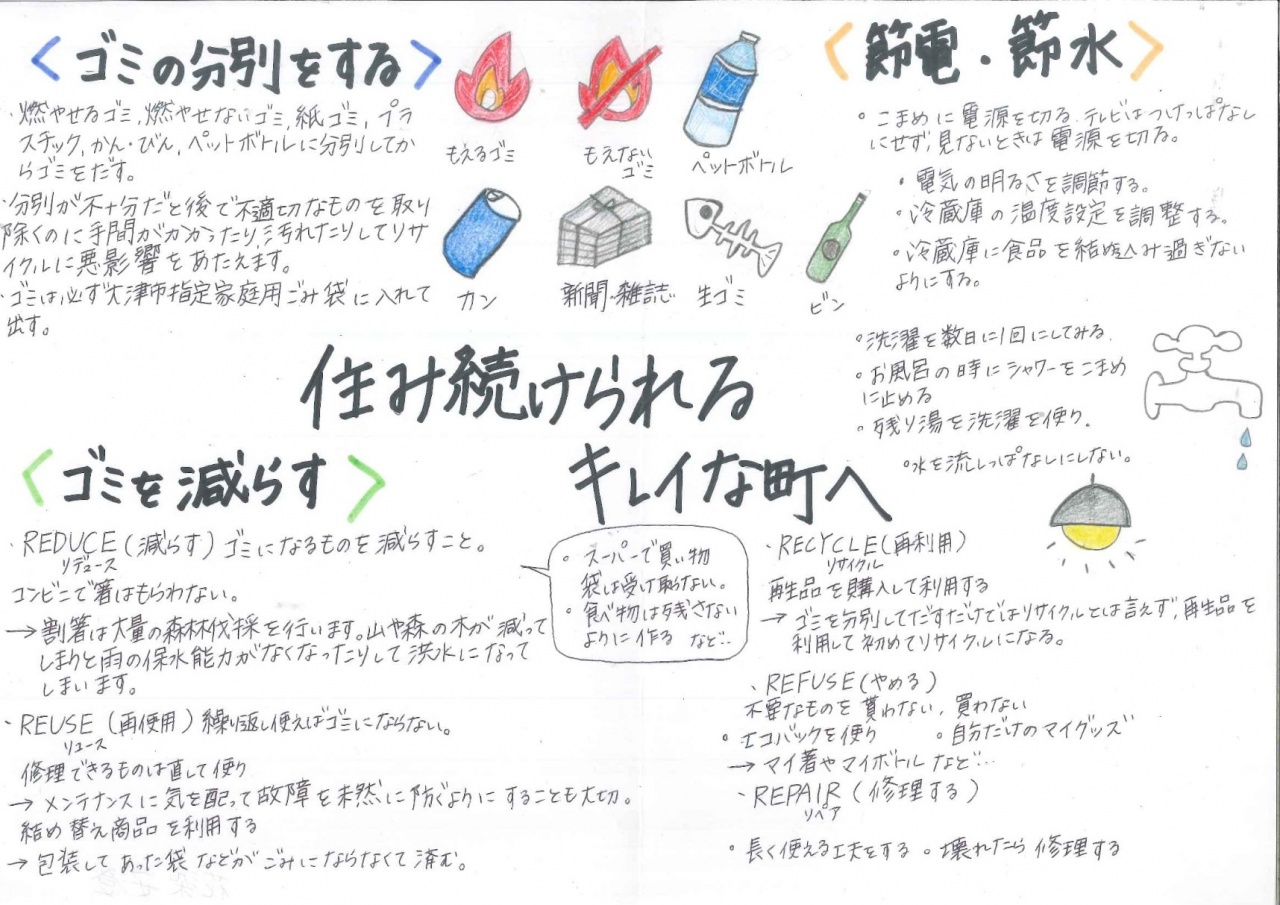 〈ゴミの分別をする〉
・燃やせるゴミ,燃やせないゴミ,紙ゴミ,プラ
スチック,かん・びん,ペットボトルに分別してか
らゴミをだす。
・分別が不十分だと後で不適切なものを取り
除くのに手間がかかったり,汚れたりしてリサ
イクルに悪影響をあたえます。
・ゴミは必ず大津市指定家庭用ごみ袋に入れて
出す。
もえるゴミ
もえない
ゴミ
ペットボトル
カン
新聞・雑誌
生ゴミ
ビン
〈節電・節水〉
・こまめに電源を切る.テレビはつけっぱなし
にせず,見ないときは電源を切る。
・電気の明るさを調節する。
・冷蔵庫の温度設定を調整する。
・冷蔵庫に食品を結め込み過ぎない
ようにする。
・洗濯を数日に1回にしてみる.
・お風呂の時にシャワーをこまめ
に止める
・残り湯を洗濯を使う.
・水を流しっぱなしにしない。
住み続けられる
キレイな町へ
〈ゴミを減らす〉
・REDUCE(減らす)ゴミになるものを減らすこと。
リデュース
コンビニで箸はもらわない。
→割箸は大量の森林伐採を行います。山や森の木が減って
しまうと雨の保水能力がなくなったりして洪水になって
しまいます。
・REUSE(再使用)繰り返し使えばゴミにならない。
リユース
修理できるものは直して使う
→メンテナンスに気を配って故障を未然に防ぐようにすることも大切。
結め替え商品を利用する
→包装してあった袋などがごみにならなくて済む。
・スーパーで買い物
袋は受け取らない。
・食べ物は残さない
ように作る など…
・RECYCLE(再利用)
リサイクル
再生品を購入して利用する
→ゴミを分別してだすだけではリサイクルとは言えず,再生品を
利用して初めてリサイクルになる。
・REFUSE(やめる)
不要なものを貰わない,買わない
・エコバックを使う ・自分だけのマイグッズ
→マイ箸やマイボトルなど…
・REPAIR(修理する)
リペア
・長く使える工夫をする ・壊れたら修理する